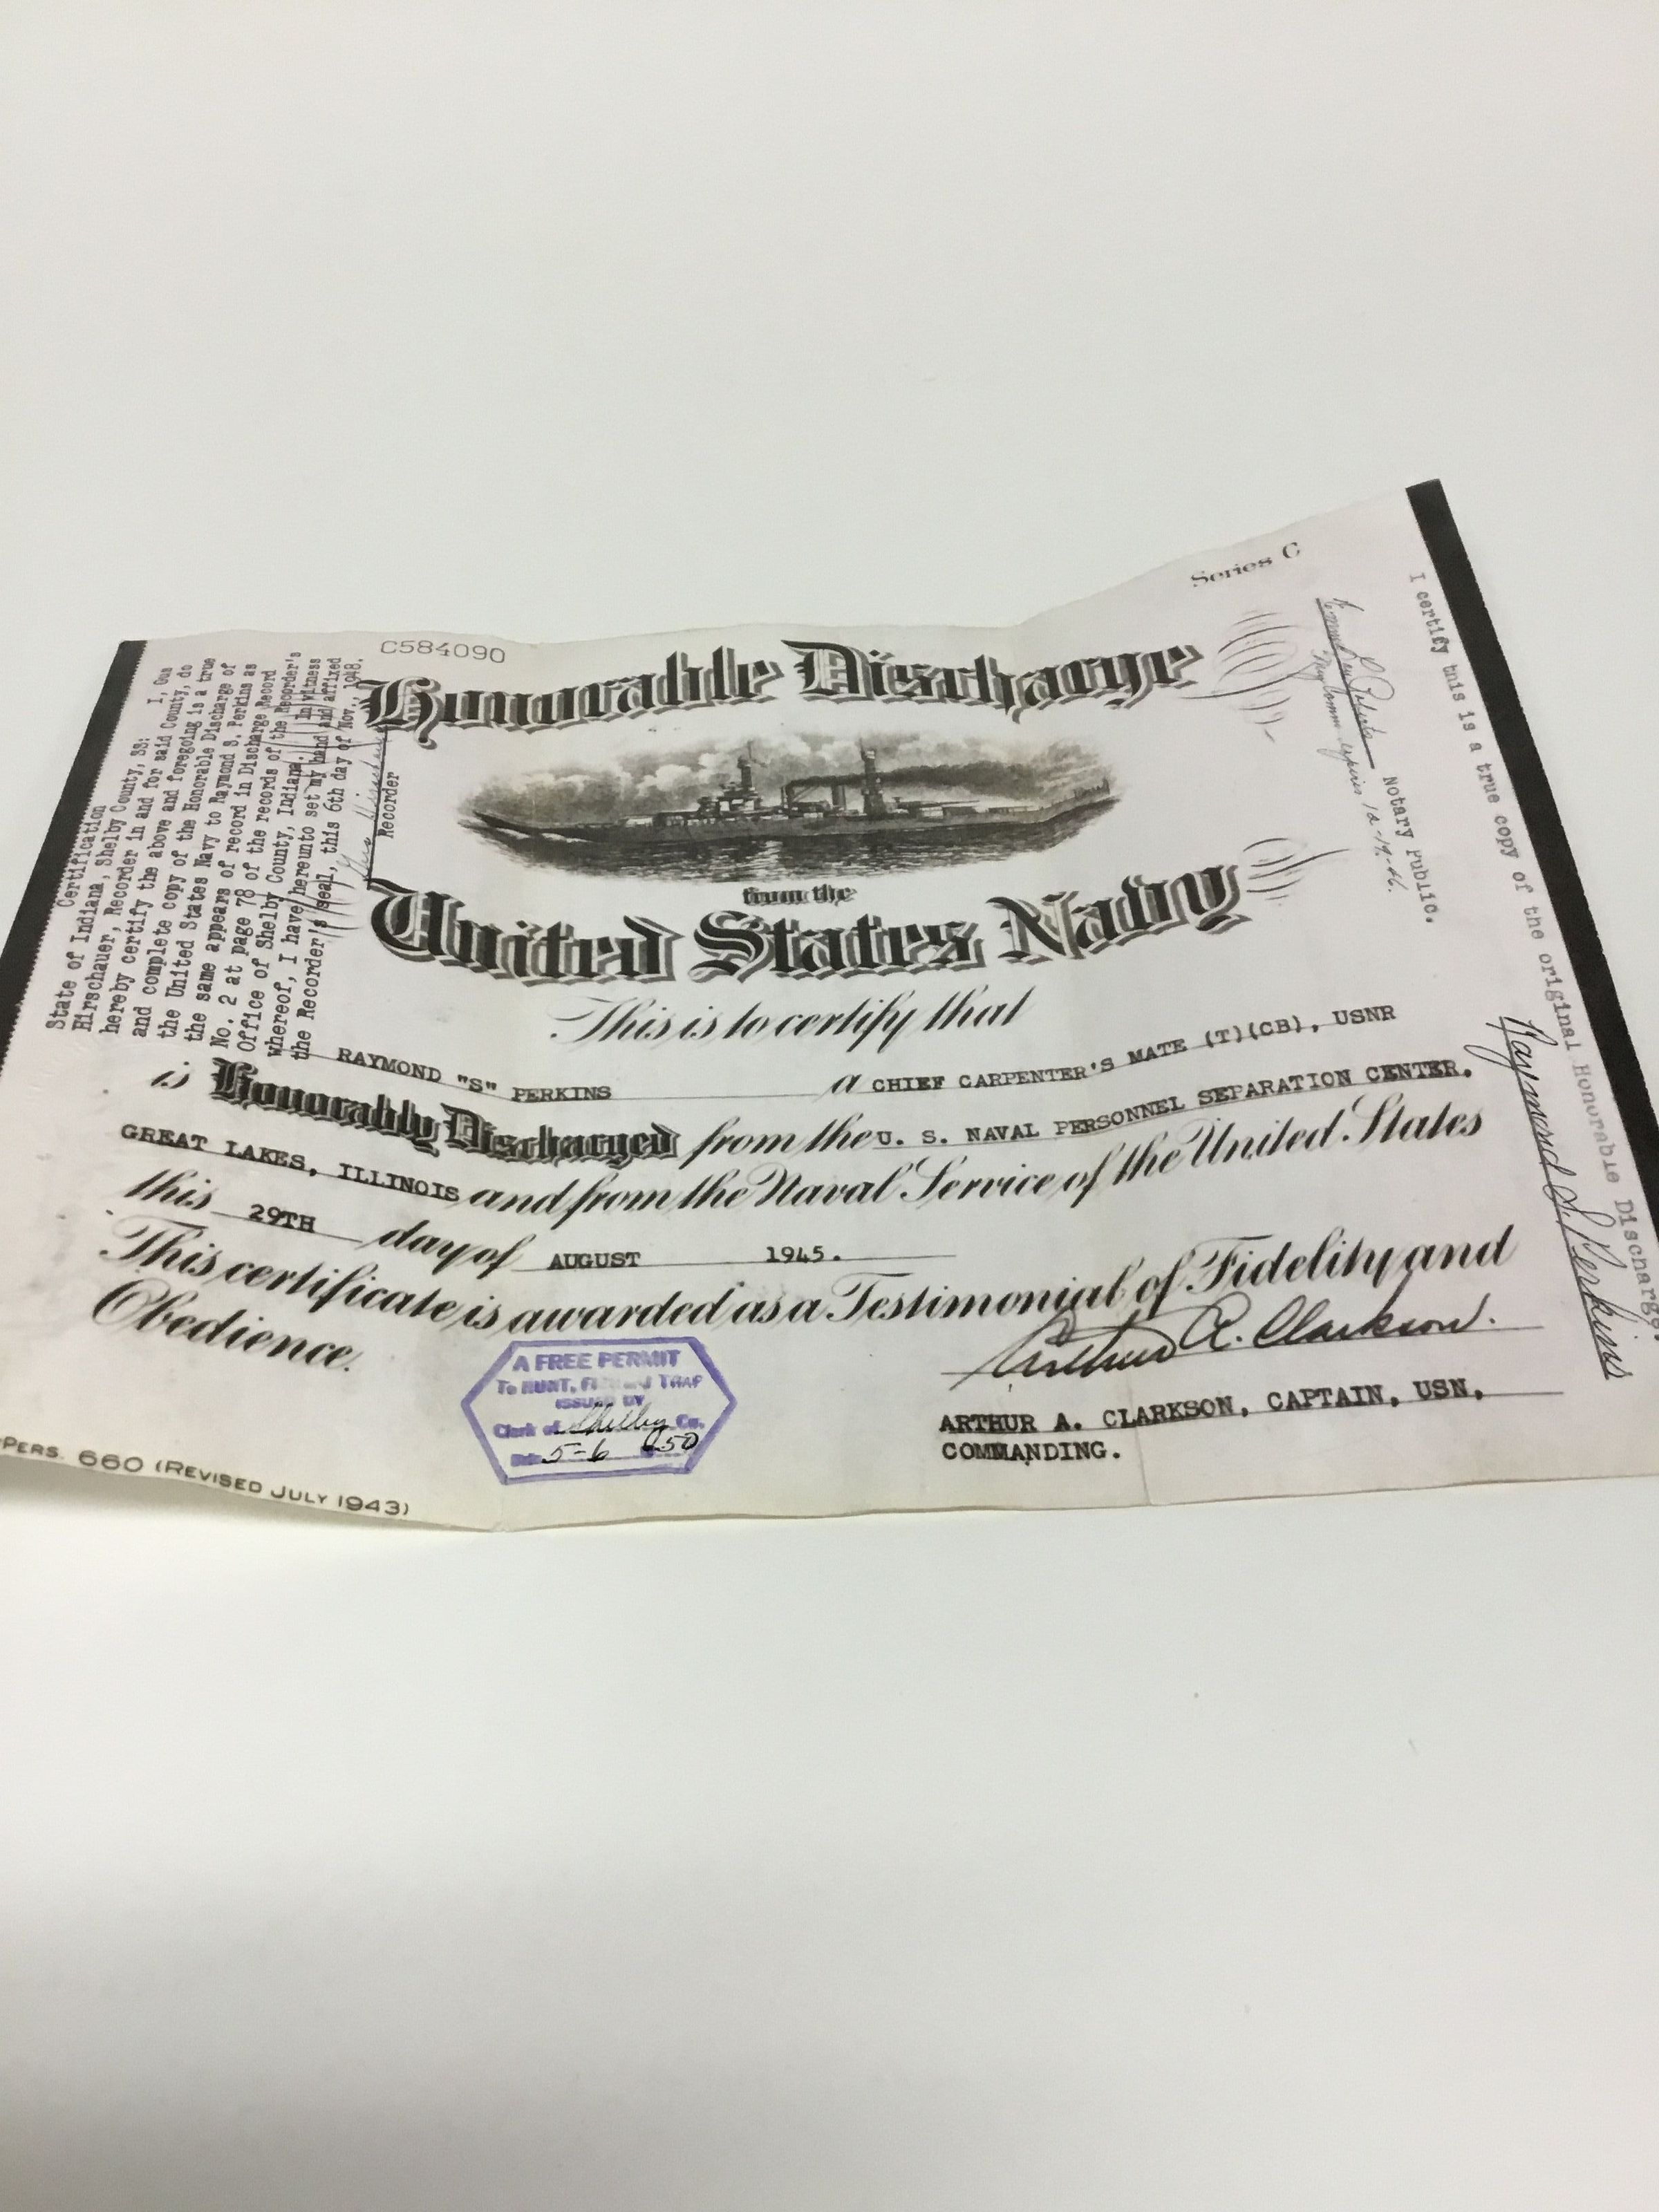 C584090
Series C
Honorable Discharge
from the
United States Navy
This is to certify that
RAYMOND "S" PERKINS a CHIEF CARPENTER'S MATE (T)(CB), USNR
is Honorably Discharged from the U. S. NAVAL PERSONNEL SEPARATION CENTER,
GREAT LAKES, ILLINOIS and from the Naval Service of the United States
this 29TH day of AUGUST 1945.
This certificate is awarded as a Testimonial of Fidelity and
Obedience.
Arthur A. Clarkson.
ARTHUR A. CLARKSON, CAPTAIN, USN,
COMMANDING.
A FREE PERMIT
To HUNT, TRAP
ISSUED BY
Clerk of Shelby Co.
5-6 1950
PERS. 660 (REVISED JULY 1943)
Certification
State of Indiana, Shelby County, SS: I, Gus
Hirschauer, Recorder in and for said County, do
hereby certify the above and foregoing is a true
and complete copy of the Honorable Discharge of
the United States Navy to Raymond S. Perkins as
the same appears of record in Discharge Record
No. 2 at page 78 of the records of the Recorder's
Office of Shelby County, Indiana. In witness
whereof, I have hereunto set my hand and affixed
the Recorder's seal, this 6th day of Nov., 1948.
Gus Hirschauer
Recorder
I certify this is a true copy of the original Honorable Discharge.
Raymond S. Perkins
Notary Public.
My Comm expires 12-19-46.